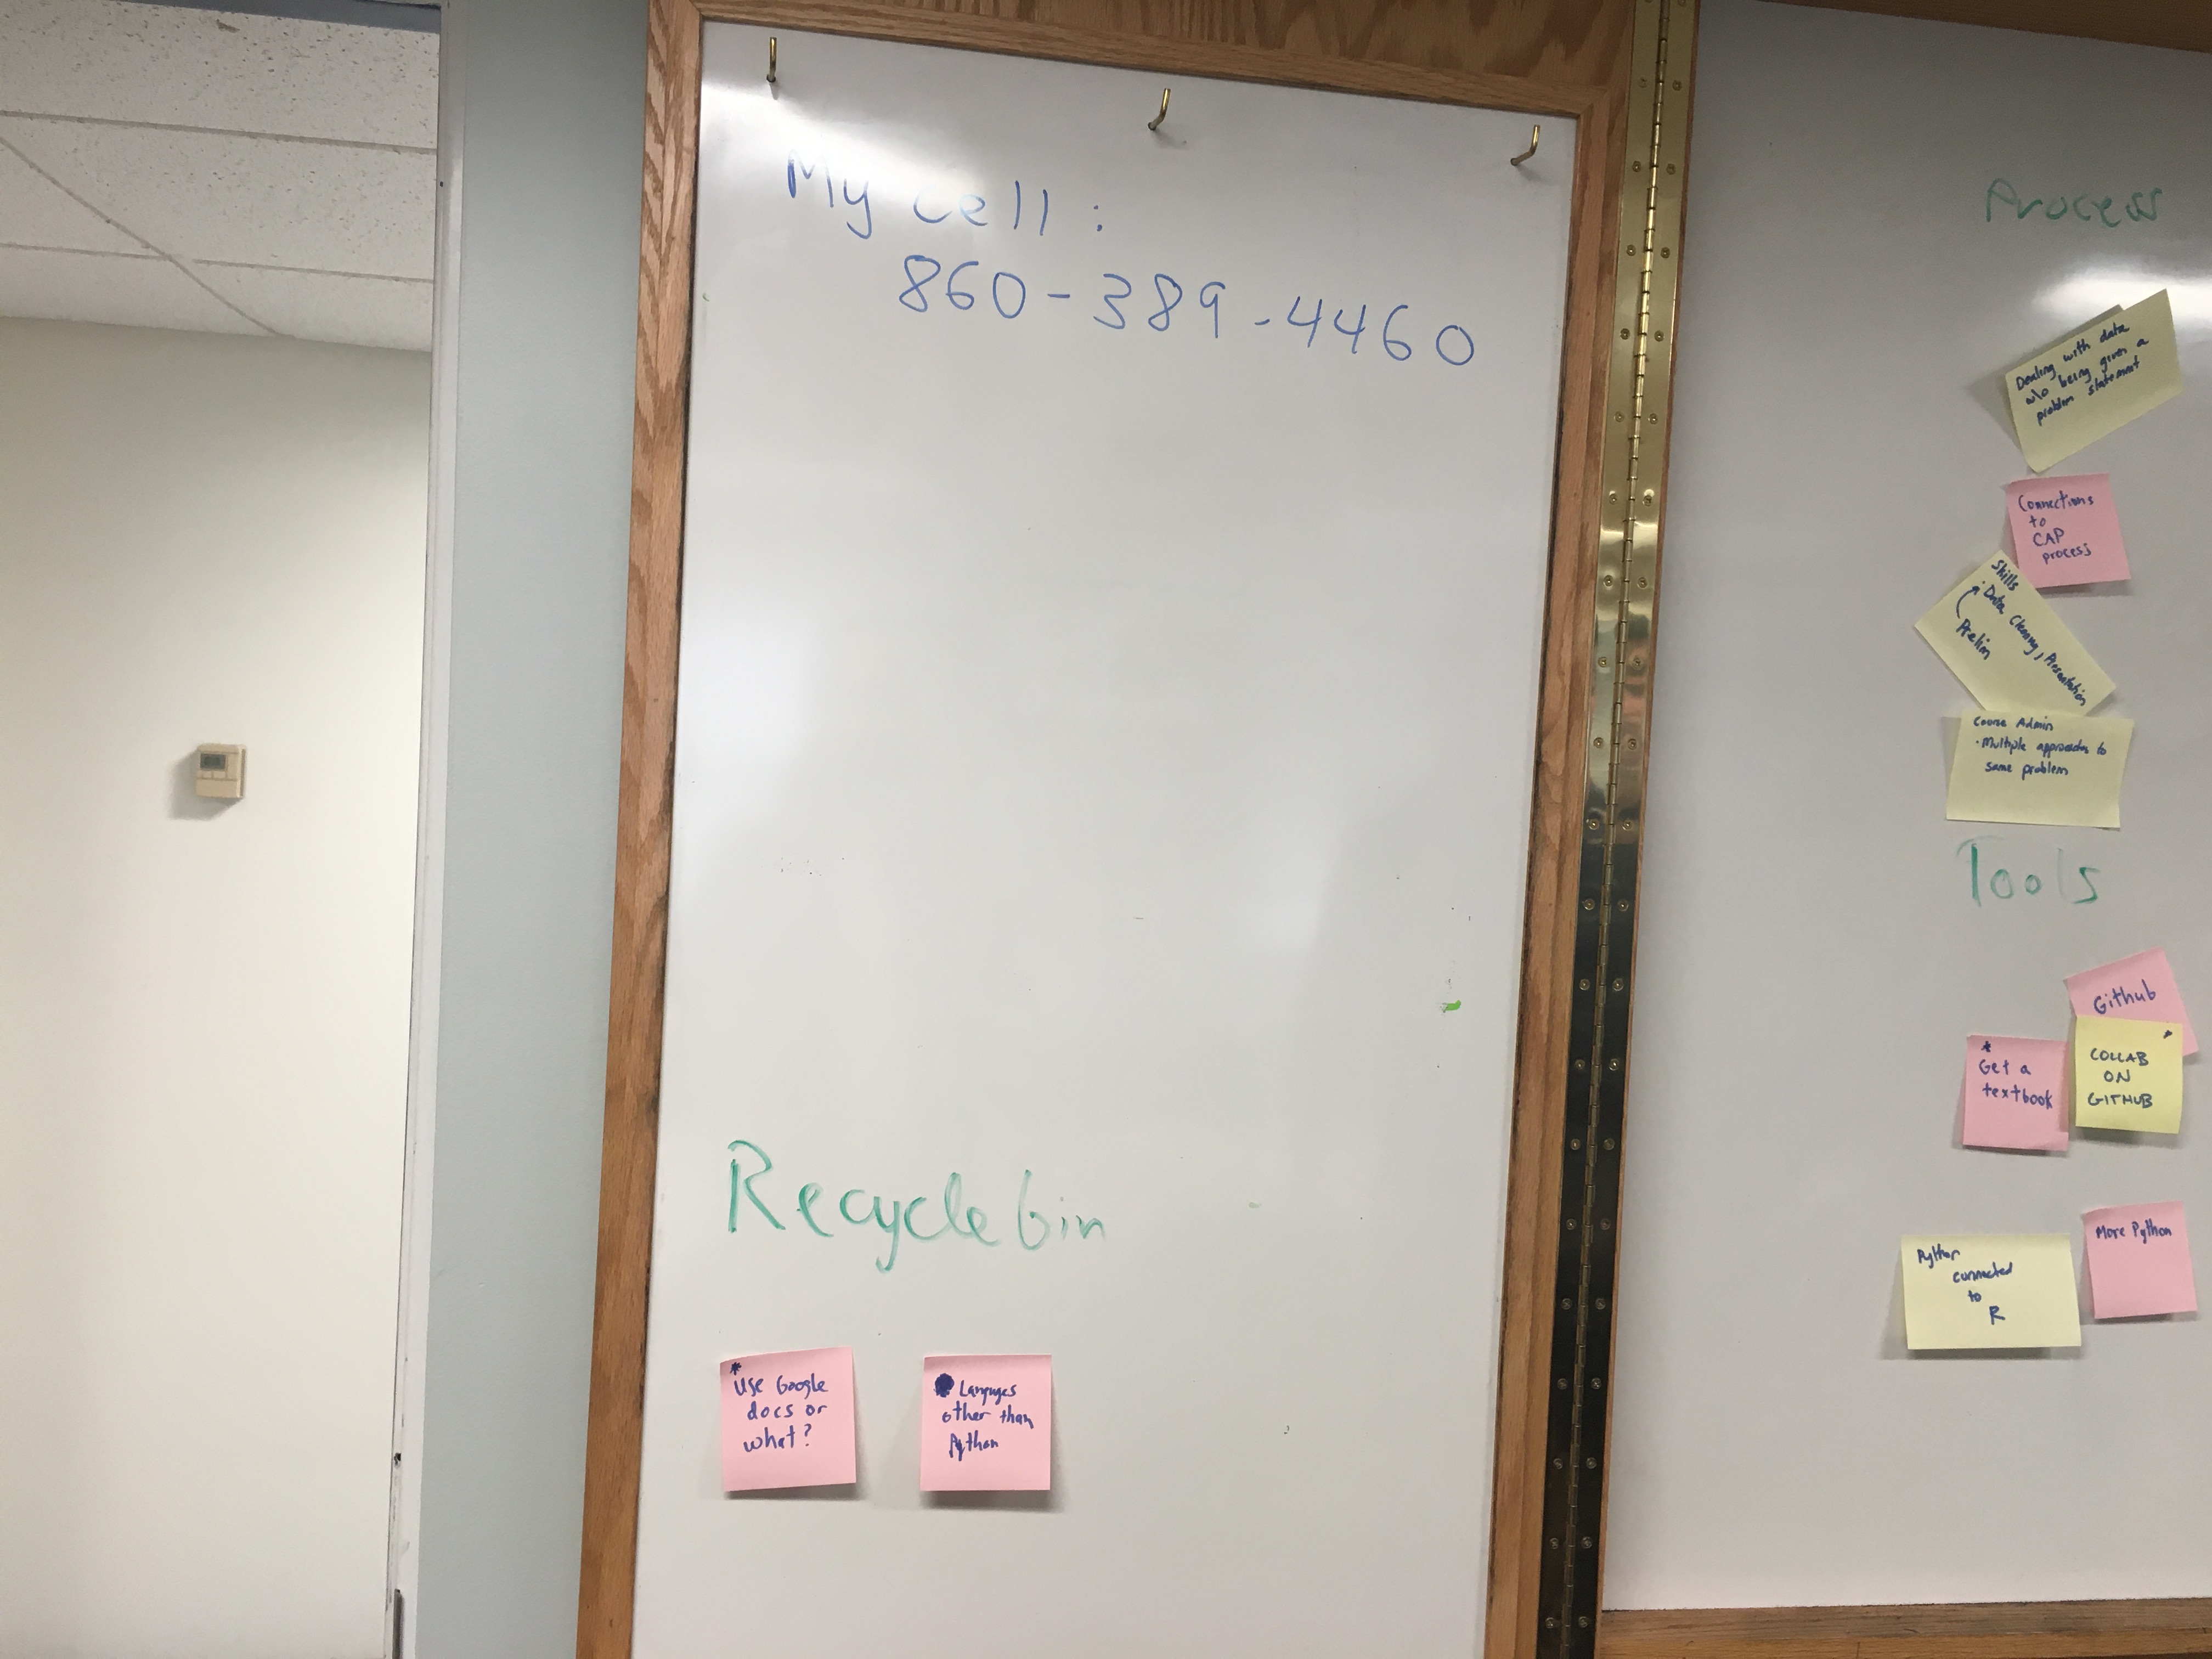 My cell :
860-389-4460
Recycle bin
* Use Google
docs or
what?
Languges
other than
Python
Process
Dealing with data
w/o being given a
problem statement
Connections
to
CAP
process
Skills
· Data Cleaning, Presentation
Prelim
Course Admin
· Multiple approaches to
same problem
Tools
Github
*
Get a
textbook
COLLAB
ON
GITHUB
More Python
Python
connected
to
R